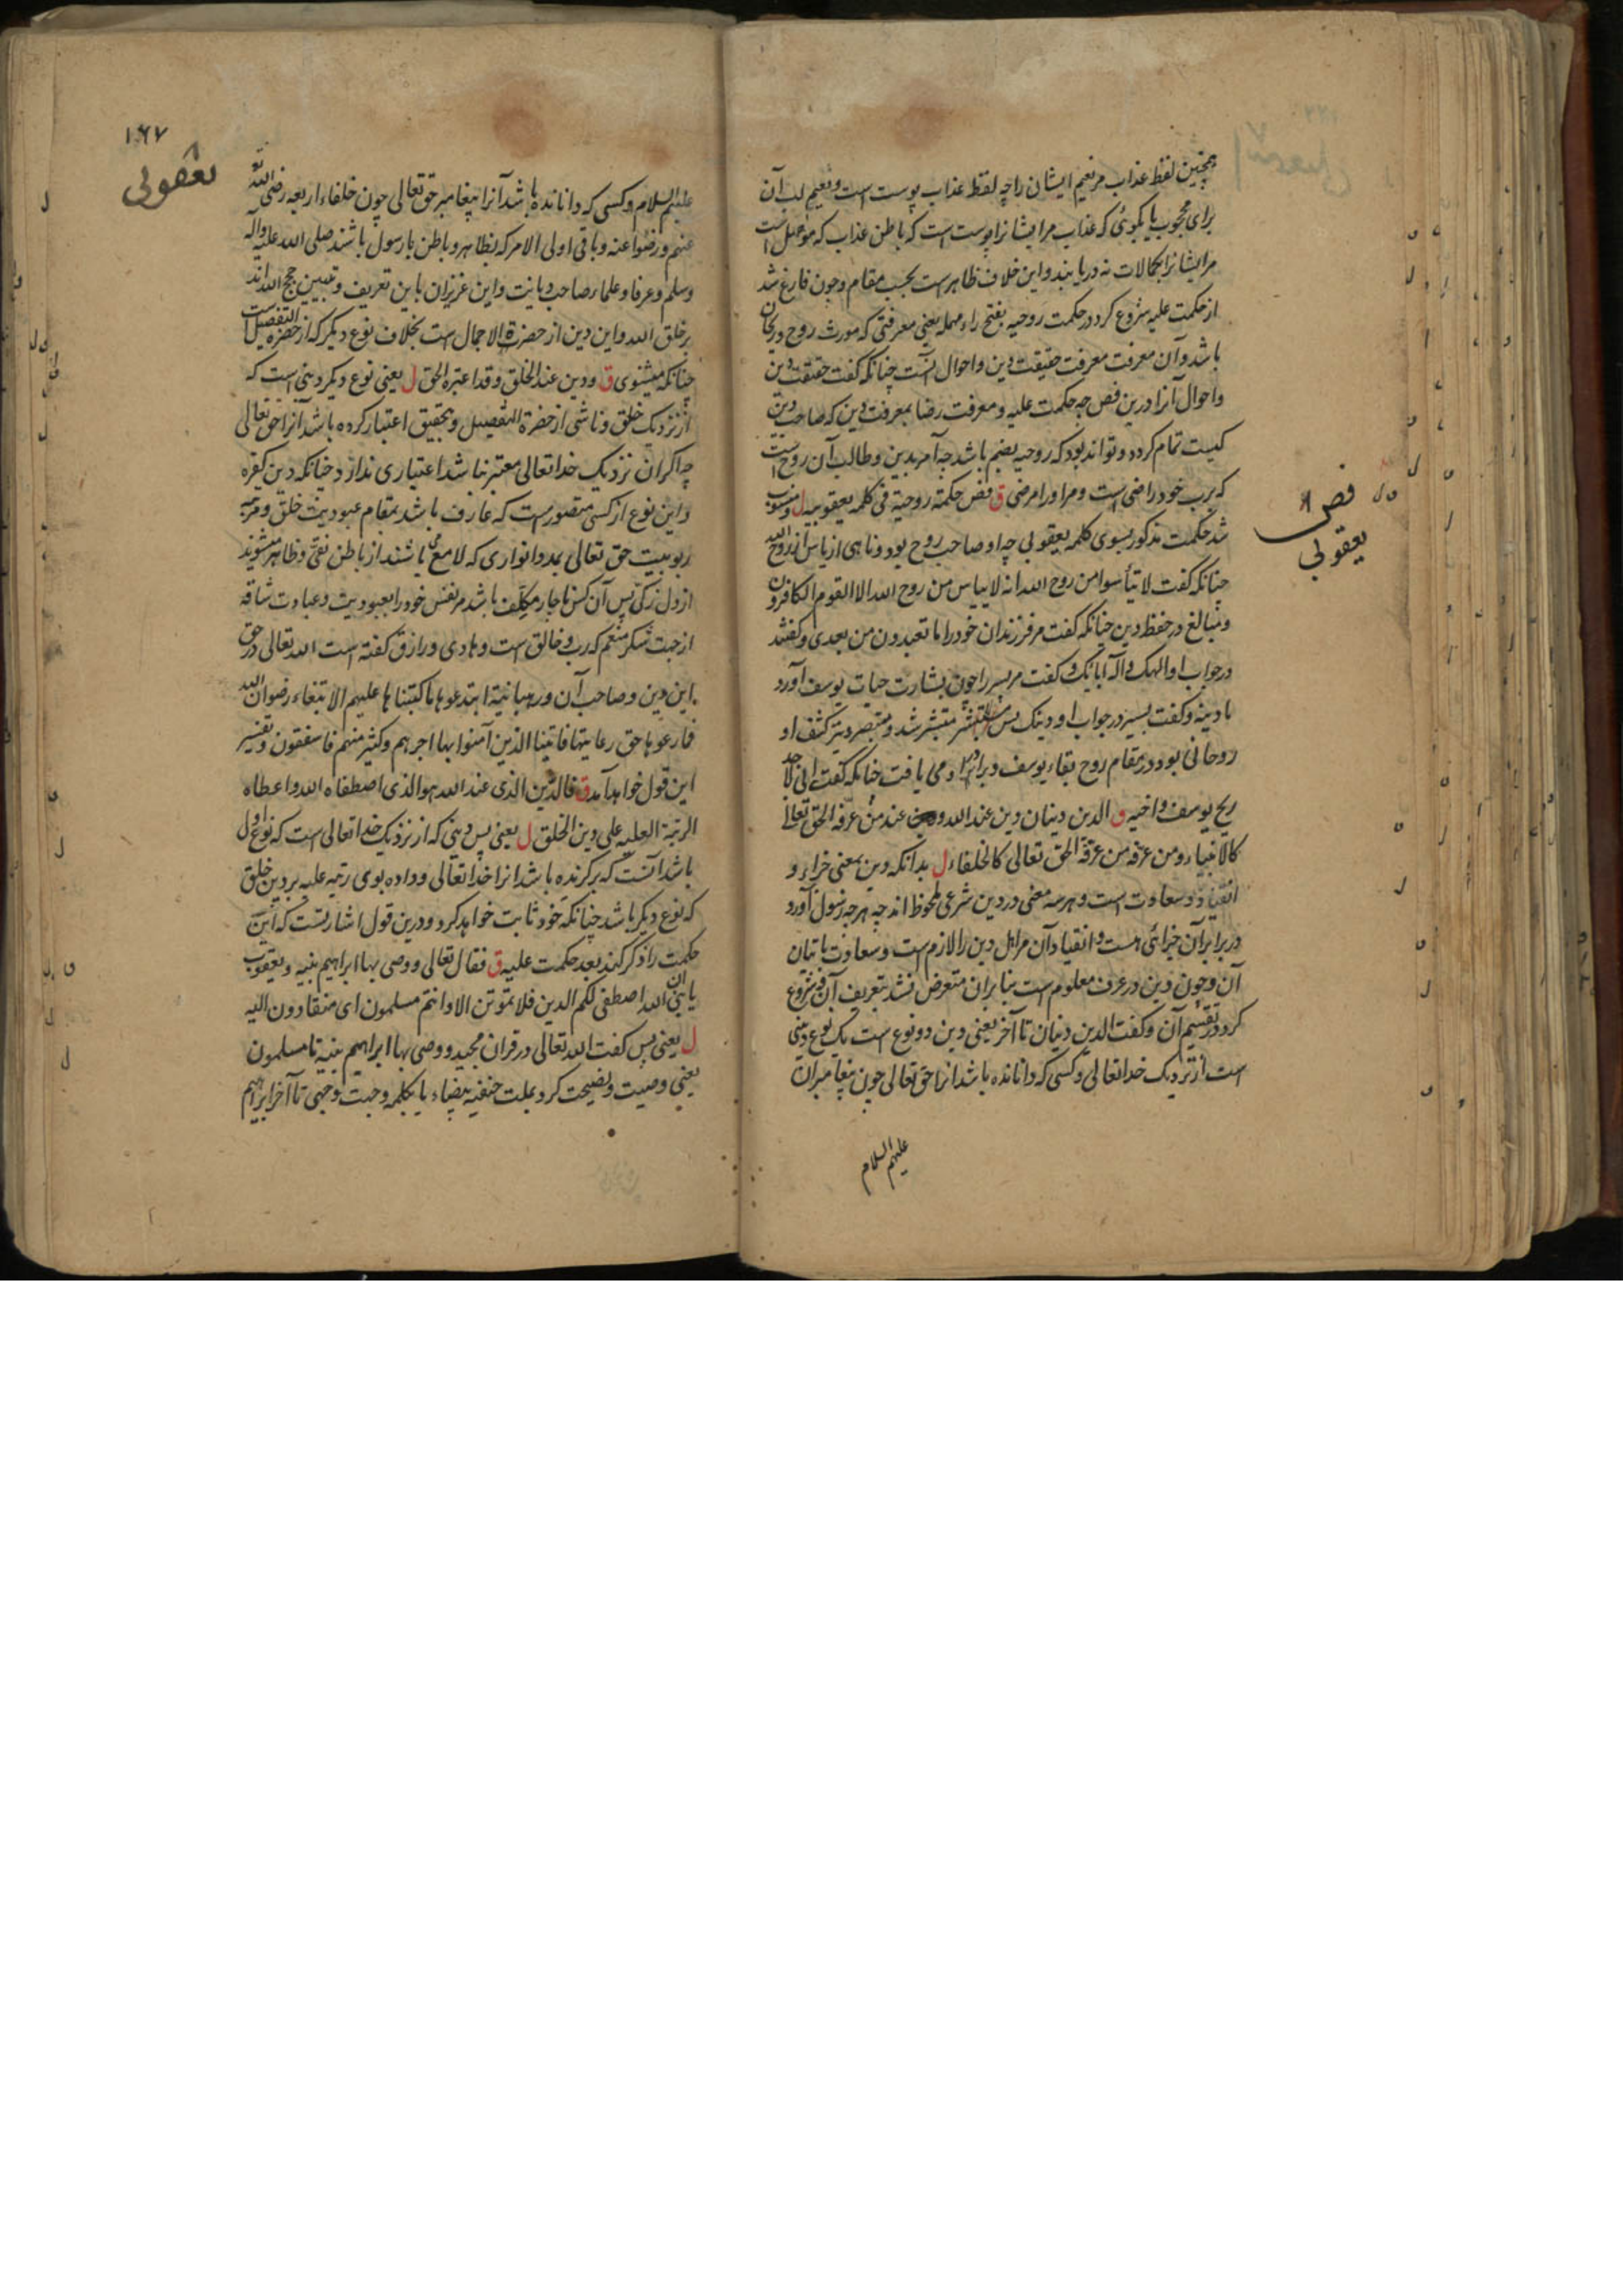 همچنین لفظ عذاب مر نعیم ایشان را چه لفظ عذاب پوست است و نعیم لب آن
برای محجوب یا بگوئی که عذاب مر ایشانرا پوست است که باطن عذاب که موصل است
مر ایشانرا بکمالات نه دریابند و این خلاف ظاهر است بحسب مقام و چون فارغ شد
از حکمت علیه شروع کرد در حکمت روحیه بفتح راء مهمله یعنی معرفتی که مورث روح و ریحان
باشد و آن معرفت معرفت حقیقت دین و احوال آنست چنانکه گفت حقیقت دین
و احوال آنرا درین فص چه حکمت علیه و معرفت رضا بمعرفت دین که صاحب دین
کیست تمام کردد و تواند بود که روحیه بضم باشد چه آمر بدین و طالب آن روح است
که برب خود راضی است و مر او را مرضی ق فص حکمة روحیة فی کلمة یعقوبیه ل منسوب
شد حکمت مذکور بسوی کلمه یعقوبی چه او صاحب روح بود و ناهی از یاس از روح الله
چنانکه گفت لا تیأسوا من روح الله انه لا ییاس من روح الله الا القوم الکافرون
و مبالغ در حفظ دین چنانکه گفت مر فرزندان خود را ما تعبدون من بعدی و گفتند
در جواب او الهک و اله آبائک و گفت مر بسیر را چون بشارت حیات یوسف آورد
با دینه و گفت بسیر در جواب او دینک پس مستبشر شد و متبصر و نیز کشف او
روحانی بود در مقام روح بقاء یوسف و برادر او می یافت چنانکه گفت انی لاجد
ریح یوسف و اخیه ق الدین دینان دین عند الله و عند من عرفه الحق تعالی
کالانبیاء و من عرفه من عرفه الحق تعالی کالخلفاء ل بدانکه دین بمعنی جزاء و
انقیاد و سعادت است و هر سه معنی در دین شرعی ملحوظ اند چه هر چه رسول آورد
در برابر آن جزائی هست و انقیاد آن مر اهل دین را لازم است و سعادت باتیان
آن و چون دین در عرف معلوم است بنا بر ان متعرض نشد بتعریف آن و شروع
کرد در تقسیم آن و گفت الدین دینان تا آخر یعنی دین دو نوع است یک نوع دینی
است از نزدیک خدا تعالی و کسی که داناننده باشد انرا حق تعالی چون پیغامبران
علیهم السلام
فص ۸
یعقوبی
۱۶۷
یعقوبی
علیهم السلام و کسی که داناننده باشد آنرا پیغامبر حق تعالی چون خلفاء اربعه رضی الله
عنهم و رضوا عنه و باقی اولی الامر که بظاهر و باطن با رسول باشند صلی الله علیه و آله
وسلم و عرفا و علماء صاحب دیانت و این عزیزان باین تعریف و تبیین حجج الله اند
بر خلق الله و این دین از حضرة الاجمال است بخلاف نوع دیکر که از حضرة التفصیل است
چنانکه میشنوی ق و دین عند الخلق و قد اعتبره الحق ل یعنی نوع دیکر دینی است که
از نزدیک خلق و ناشی از حضرة التفصیل و بتحقیق اعتبار کرده باشد آنرا حق تعالی
چه اکر ان نزدیک خدا تعالی معتبر نباشد اعتباری ندارد چنانکه دین کفره
و این نوع از کسی متصور است که عارف باشد بمقام عبودیت خلق و مرتبه
ربوبیت حق تعالی بمدد انواری که لامع باشند از باطن نقی و ظاهر میشوند
از دل زکی پس آن کس ناچار مکلف باشد مر نفس خود را بعبودیت و عبادت شاقه
از جهت شکر منعم که رب و خالق است و هادی و رازق گفته است الله تعالی در حق
این دین و صاحب آن و رهبانیة ابتدعوها ما کتبناها علیهم الا ابتغاء رضوان الله
فما رعوها حق رعایتها فاتینا الذین آمنوا بها اجرهم و کثیر منهم فاسقون و تفسیر
این قول خواهد آمد ق فالدین الذی عند الله هو الذی اصطفاه الله و اعطاه
الرتبة العلیه علی دین الخلق ل یعنی پس دینی که از نزدیک خدا تعالی است که نوع اول
باشد آنست که برگزیده باشد انرا خدا تعالی و داده بوی رتبه علیه بر دین خلق
که نوع دیکر باشد چنانکه خود ثابت خواهد کرد و درین قول اشارتست که این
حکمت را ذکر کند بعد حکمت علیه ق فقال تعالی و وصی بها ابراهیم بنیه و یعقوب
یا بنی ان الله اصطفی لکم الدین فلا تموتن الا و انتم مسلمون ای منقادون الیه
ل یعنی پس گفت الله تعالی در قران مجید و وصی بها ابراهیم بنیه تا مسلمون
یعنی وصیت و نصیحت کرد بملت حنفیه بیضاء یا بکلمه وجهت وجهی تا آخر ابراهیم